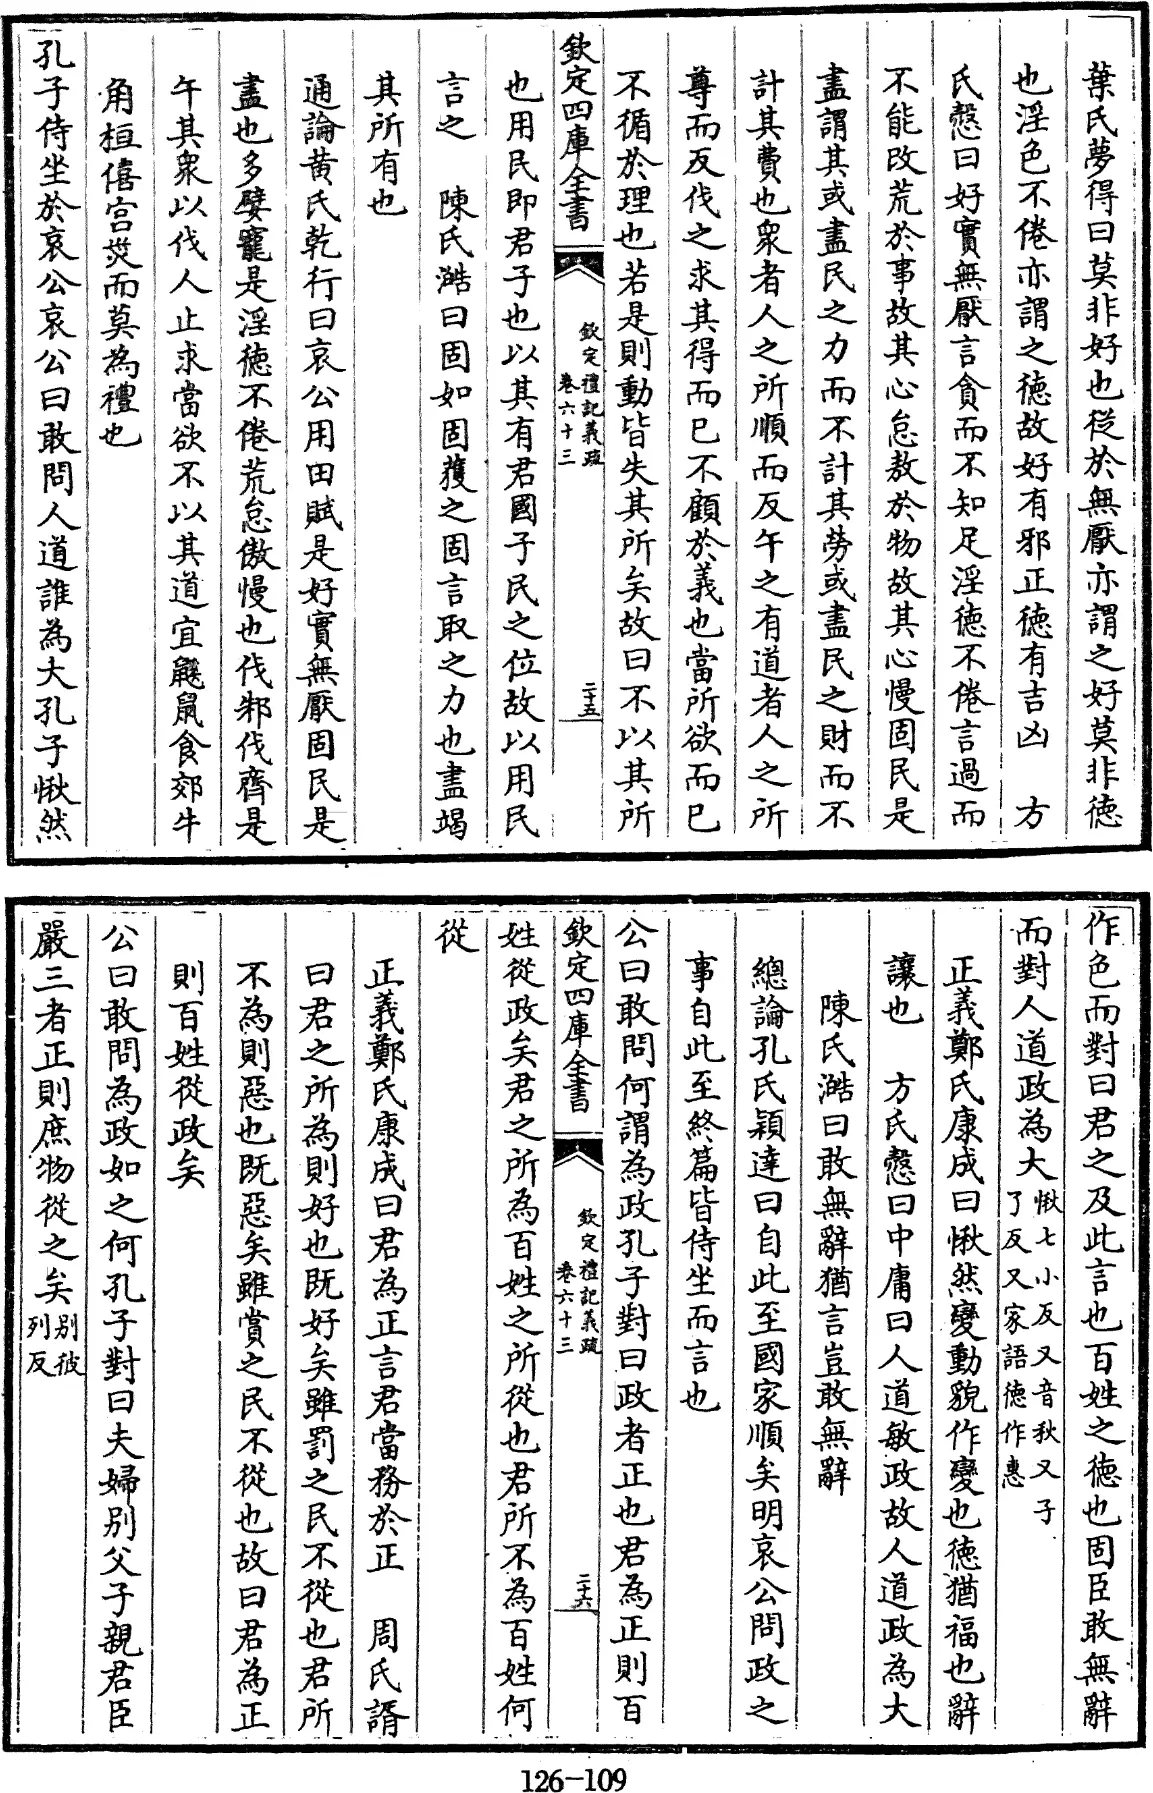 葉氏夢得曰莫非好也從於無厭亦謂之好莫非德
也淫色不倦亦謂之德故好有邪正德有吉凶　方
氏慤曰好實無厭言貪而不知足淫德不倦言過而
不能改荒於事故其心怠敖於物故其心慢固民是
盡謂其或盡民之力而不計其勞或盡民之財而不
計其費也衆者人之所順而反午之有道者人之所
尊而反伐之求其得而已不顧於義也當所欲而已
不循於理也若是則動皆失其所矣故曰不以其所
欽定四庫全書
欽定禮記義疏
卷六十三
二十五
也用民即君子也以其有君國子民之位故以用民
言之　陳氏澔曰固如固獲之固言取之力也盡竭
其所有也
通論黄氏乾行曰哀公用田賦是好實無厭固民是
盡也多嬖寵是淫德不倦荒怠傲慢也伐邾伐齊是
午其衆以伐人止求當欲不以其道宜鼷鼠食郊牛
角桓僖宮災而莫為禮也
孔子侍坐於哀公哀公曰敢問人道誰為大孔子愀然
作色而對曰君之及此言也百姓之德也固臣敢無辭
而對人道政為大愀七小反又音秋又子
了反又家語德作惠
正義鄭氏康成曰愀然變動貌作變也德猶福也辭
讓也　方氏慤曰中庸曰人道敏政故人道政為大
陳氏澔曰敢無辭猶言豈敢無辭
總論孔氏穎達曰自此至國家順矣明哀公問政之
事自此至終篇皆侍坐而言也
公曰敢問何謂為政孔子對曰政者正也君為正則百
欽定四庫全書
欽定禮記義疏
卷六十三
二十六
姓從政矣君之所為百姓之所從也君所不為百姓何
從
正義鄭氏康成曰君為正言君當務於正　周氏諝
曰君之所為則好也既好矣雖罰之民不從也君所
不為則惡也既惡矣雖賞之民不從也故曰君為正
則百姓從政矣
公曰敢問為政如之何孔子對曰夫婦別父子親君臣
嚴三者正則庶物從之矣別彼
列反
126-109